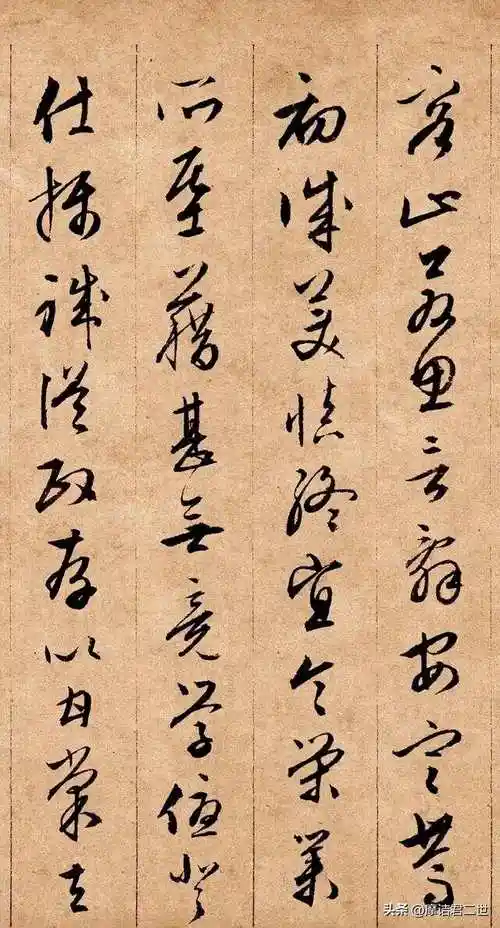 容止若思言辭安定篤
初誠美慎終宜令榮業
所基藉甚無竟學優登
仕攝職從政存以甘棠去
头条 @摩诘君二世